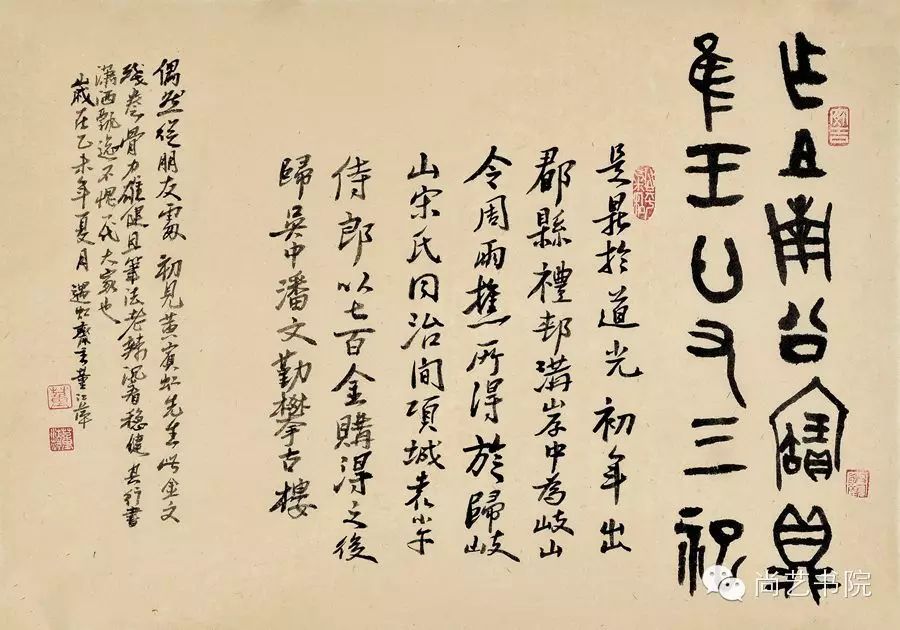 乍且南公寶鼎
隹王廿又三祀
是鼎於道光初年出
郿縣禮邨溝岸中為岐山
令周雨樵所得旋歸岐
山宋氏同治間項城袁小午
侍郎以七百金購得之後
歸吳中潘文勤攀古樓
偶然從朋友處初見黃賓虹先生此金文
殘卷骨力雄健且筆法老辣沉着穩健其行書
瀟洒飄逸不愧一代大家也
歲在乙未年夏月遇虹齋主董江
尚艺书院